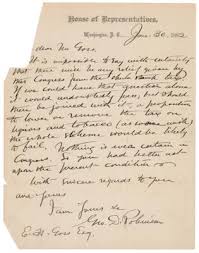 House of Representatives,
Washington, D. C., Jan. 30, 1882
My dear Mr Goss.
It is impossible to say with certainty
that there will be any relief given by
this Congress from the check stamp tax.
If we could have that question alone
it could undoubtedly pass, but should
there be joined with it, a proposition
to lower or remove the tax on
liquors and tobacco (as some wish)
the whole scheme would be likely
to fail. Nothing is ever certain in
Congress. So you had better not
upon the present condition
With sincere regards to you
I am Yours &c
Geo. D. Robinson
E. H. Goss Esq.